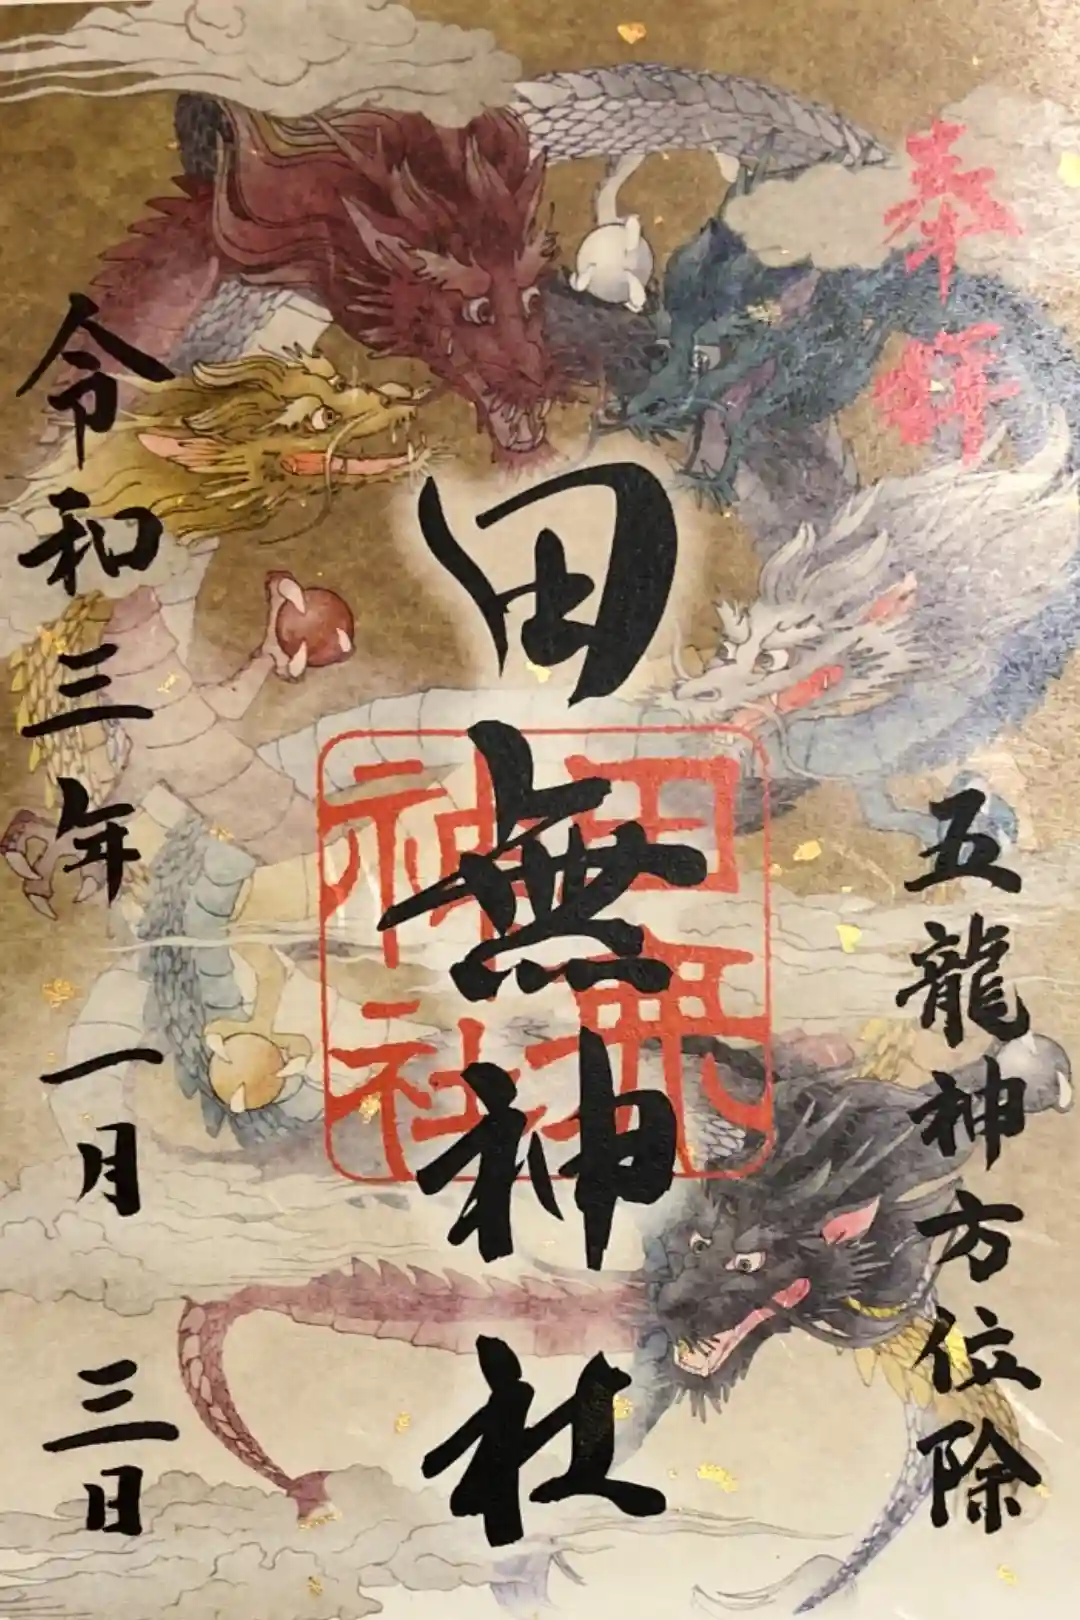 奉拝
五龍神方位除
田無神社
田無神社
令和三年一月三日